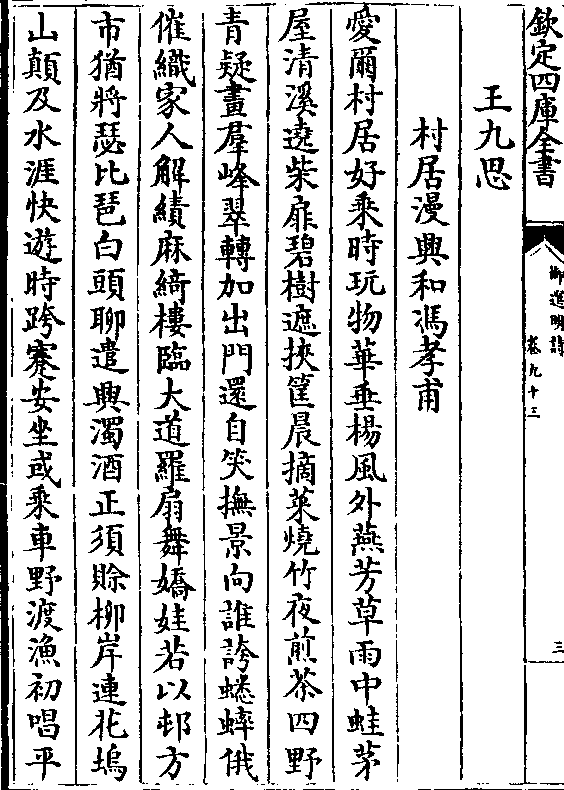 欽定四庫全書
御選明詩
卷九十三
三
王九思
村居漫興和馮孝甫
愛爾村居好乘時玩物華垂楊風外燕芳草雨中蛙茅
屋清溪遶柴扉碧樹遮挾筐晨摘菜燒竹夜煎茶四野
青疑畫羣峰翠轉加出門還自笑撫景向誰誇蟋蟀俄
催織家人解績麻綺樓臨大道羅扇舞嬌娃若以邨方
市猶將瑟比琶白頭聊遣興濁酒正須賒柳岸連花塢
山顛及水涯快遊時跨蹇安坐或乘車野渡漁初唱平